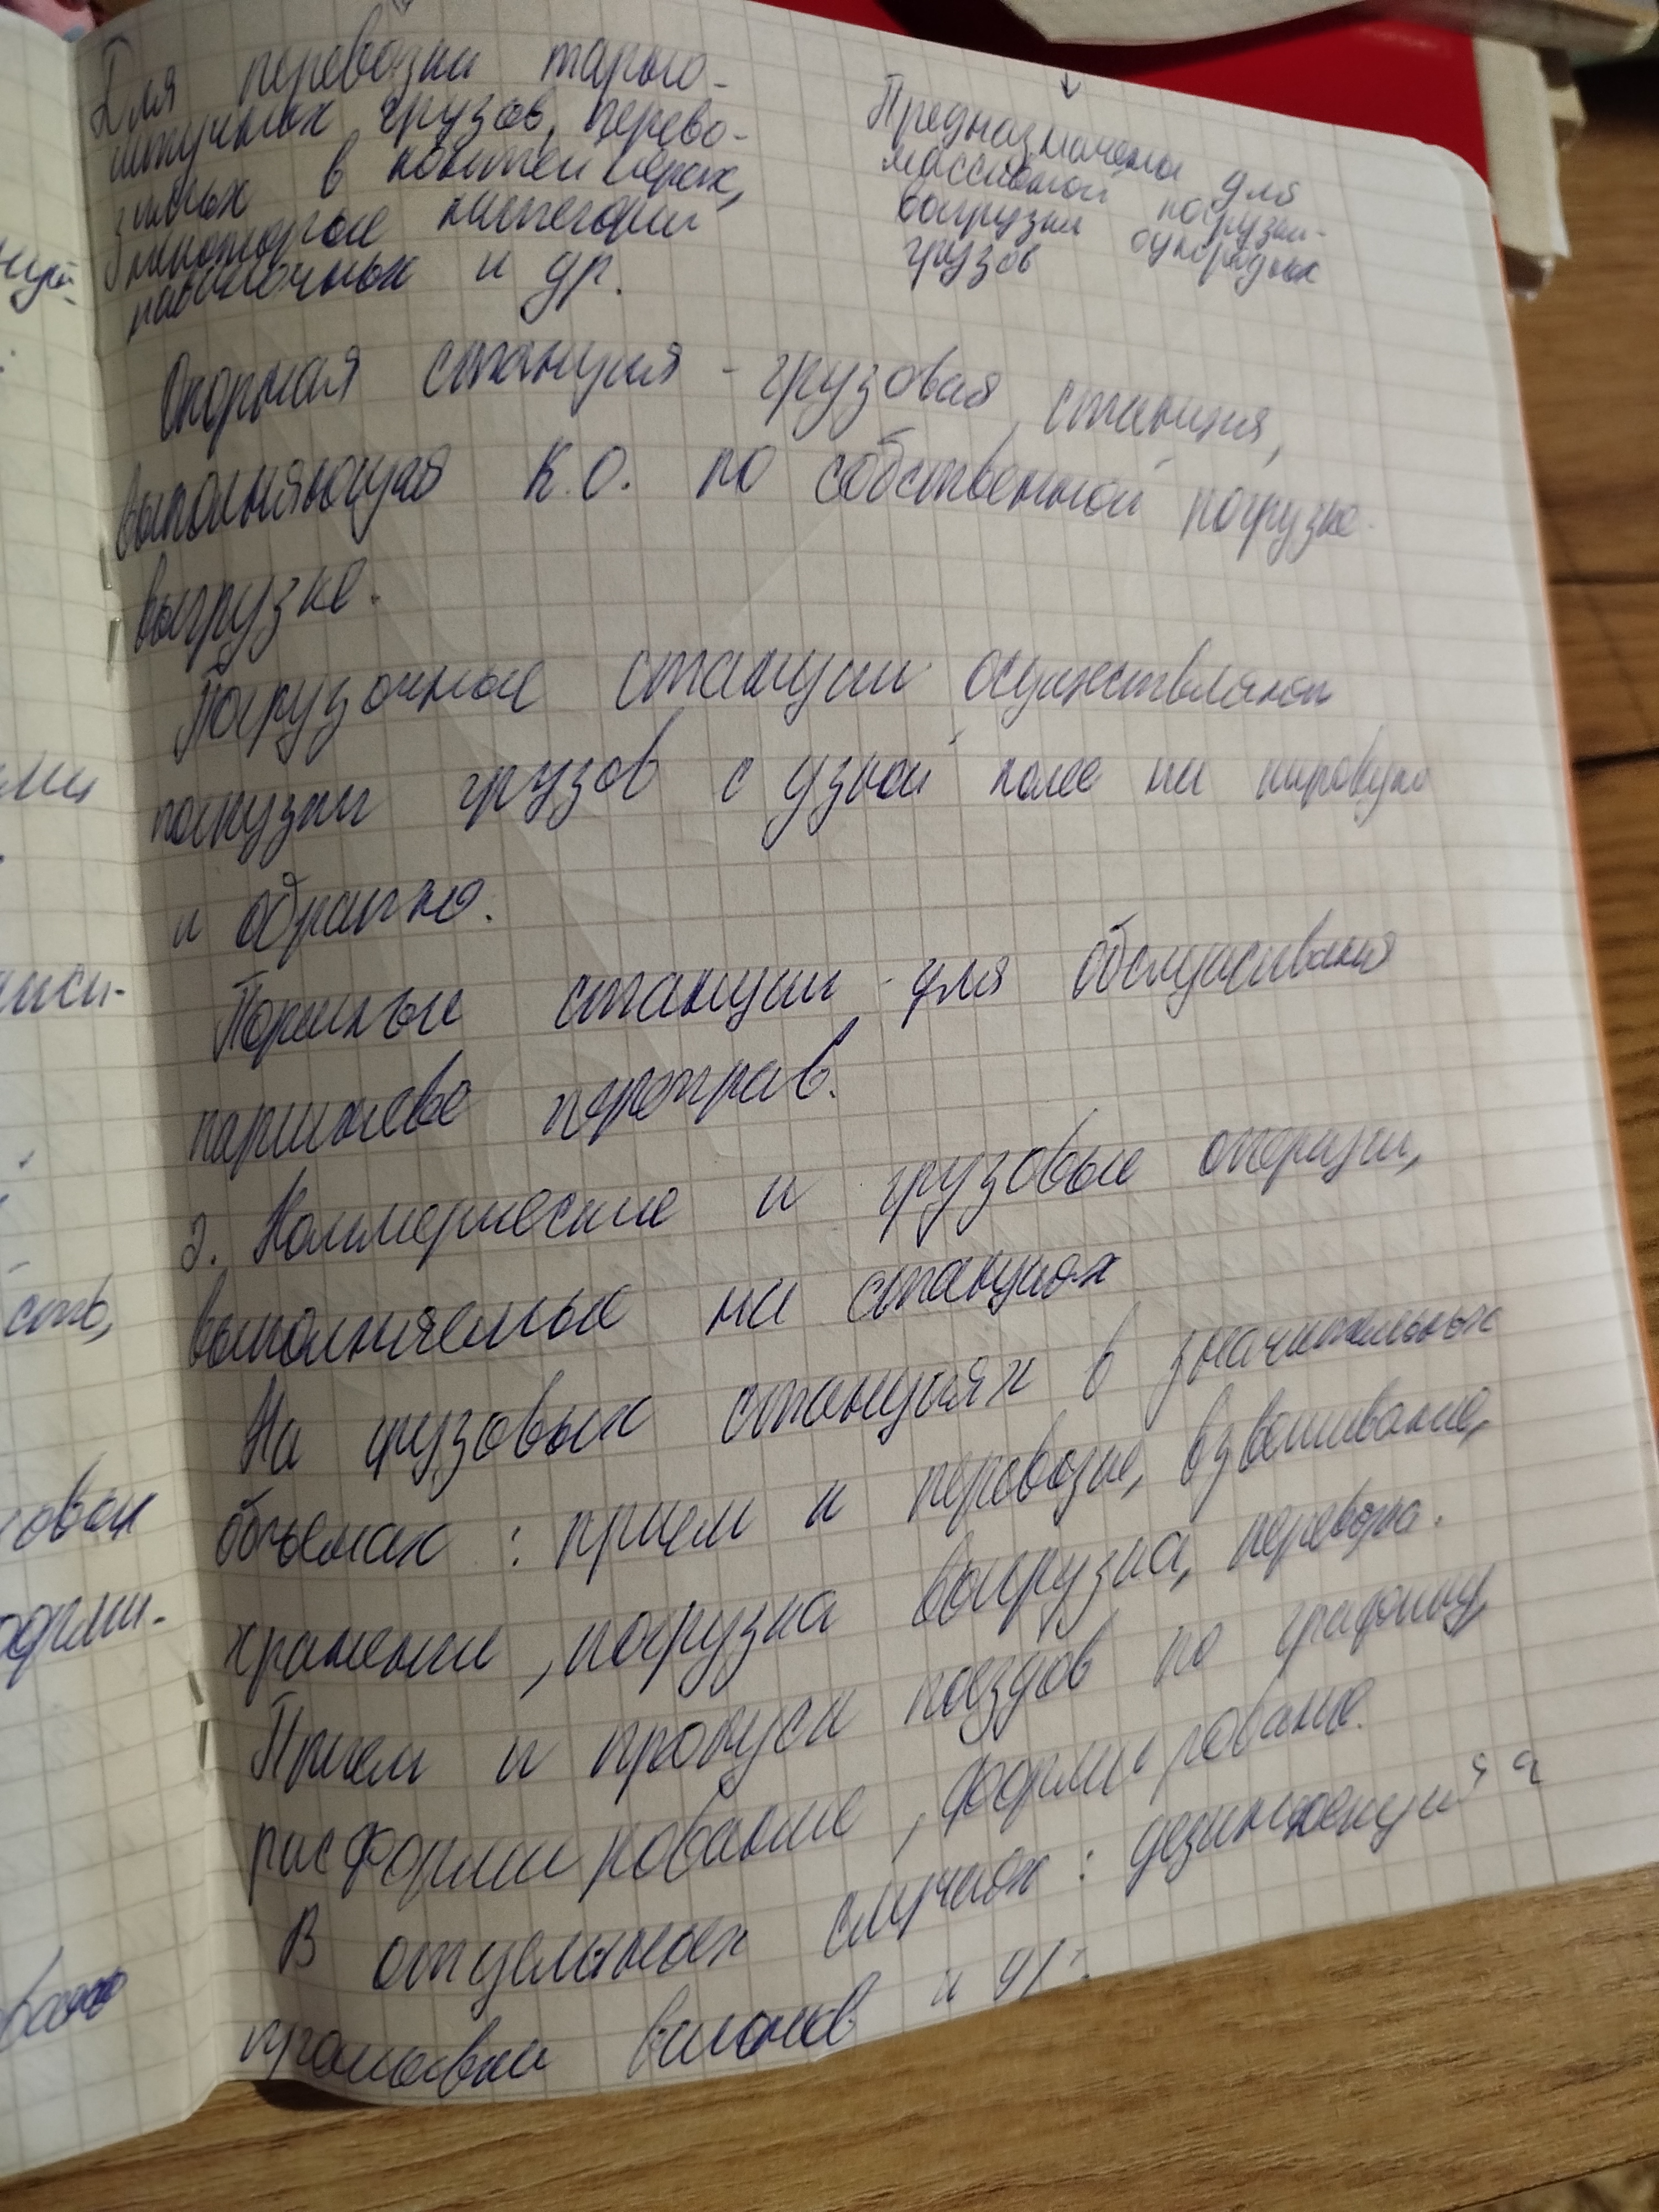 Для перевозки тарно-
штучных грузов, перево-
зимых в контейнерах,
некоторые категории
навалочных и др.
Предназначены для
массивной погрузки-
выгрузки однородных
грузов
Опорная станция - грузовая станция,
выполняющая К.О. по собственной погрузке-
выгрузке.
Погрузочные станции осуществляют
грузов с узкой колее на широкую
и обратно.
станции - для обслуживания
переправ.
2. Коммерческие и грузовые операции,
выполняемые на станциях
На грузовых станциях в значительных
объемах : прием и перевозке, взвешивание,
хранение, погрузка выгрузка, перевозка.
Прием и пропуск поездов по графику,
расформирование, формирование.
В отдельных случаях : дезинфекция
промывки вагонов и др.
ми
ость,
ванн